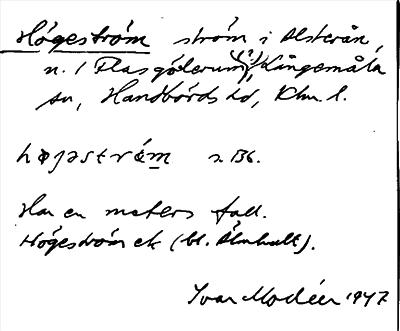 Högeström ström i Alsterån,
n. / Flasgölerum (?), Långemåla
sn, Handbörds hd, Klm. l.
høgəstrǿm s. 136.
Har en meters fall.
Högeström ek (bl. Älmhult).
Ivar Modéer 1947